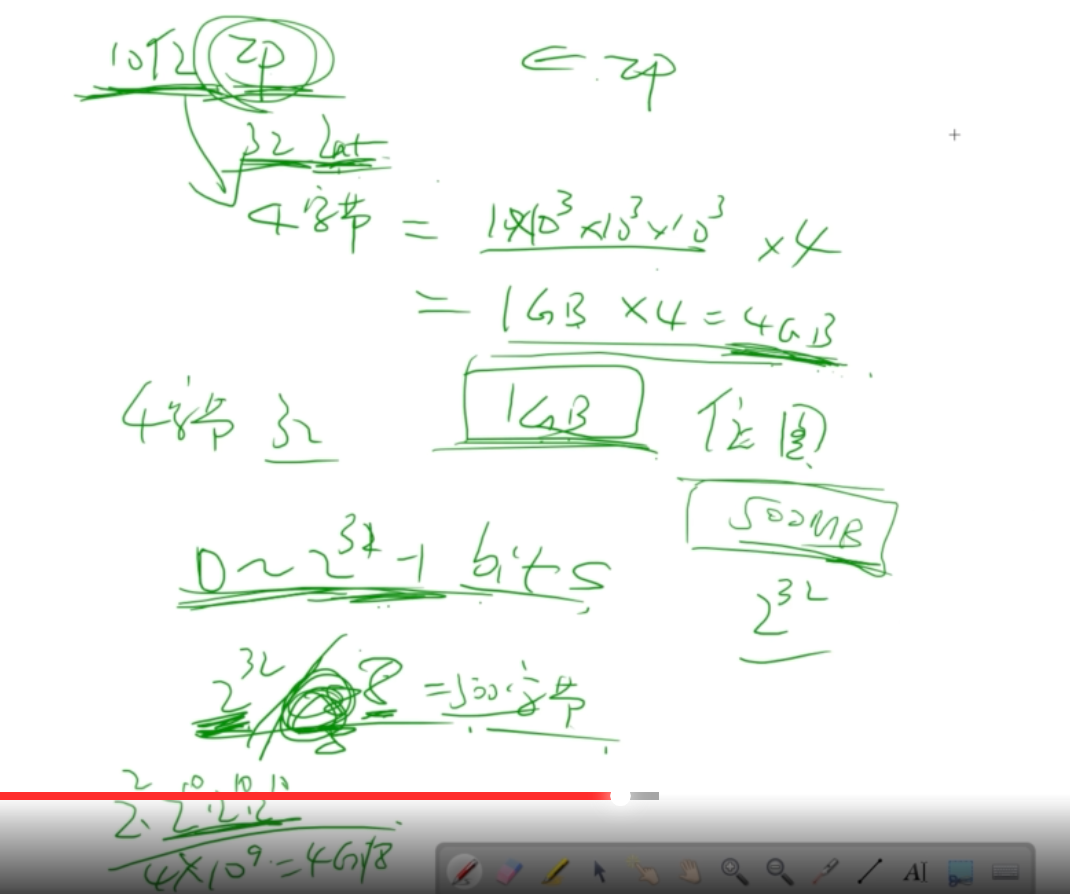 10亿 ip
← ip
32 int
4字节 = 1×10³×10³×10³ ×4
= 1GB ×4 = 4GB
4字节 32
1GB
位图
500MB
0~2³²-1 bits
2³²
2³²/8 = 500字节
2²·2¹⁰·2¹⁰·2¹⁰
4×10⁹ = 4G/8
AI